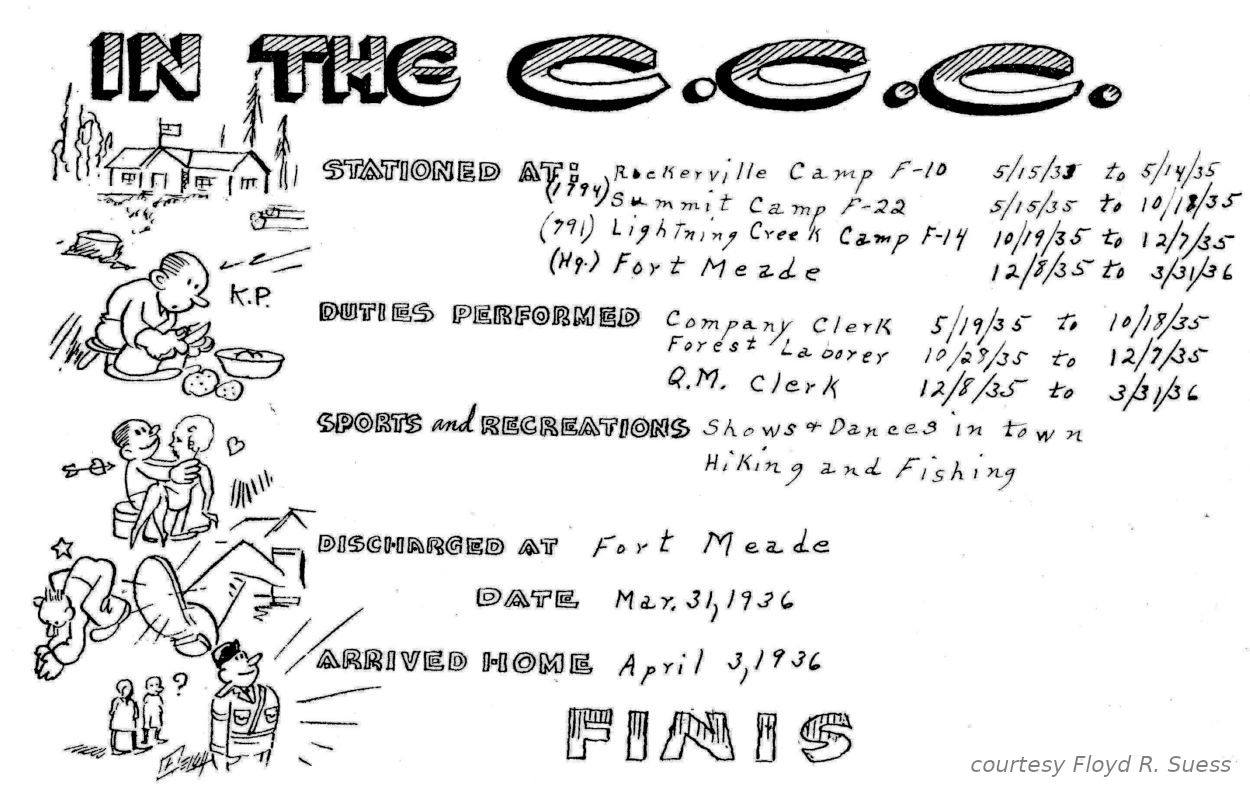 IN THE C.C.C.
STATIONED AT: Rockerville Camp F-10 5/15/35 to 5/14/35
(1794) Summit Camp F-22 5/15/35 to 10/18/35
(791) Lightning Creek Camp F-14 10/19/35 to 12/7/35
(Hq.) Fort Meade 12/8/35 to 3/31/36
K.P.
DUTIES PERFORMED Company Clerk 5/19/35 to 10/18/35
Forest Laborer 10/28/35 to 12/7/35
Q.M. Clerk 12/8/35 to 3/31/36
SPORTS and RECREATIONS Shows & Dances in town
Hiking and Fishing
DISCHARGED AT Fort Meade
DATE Mar. 31, 1936
ARRIVED HOME April 3, 1936
?
FINIS
courtesy Floyd R. Suess